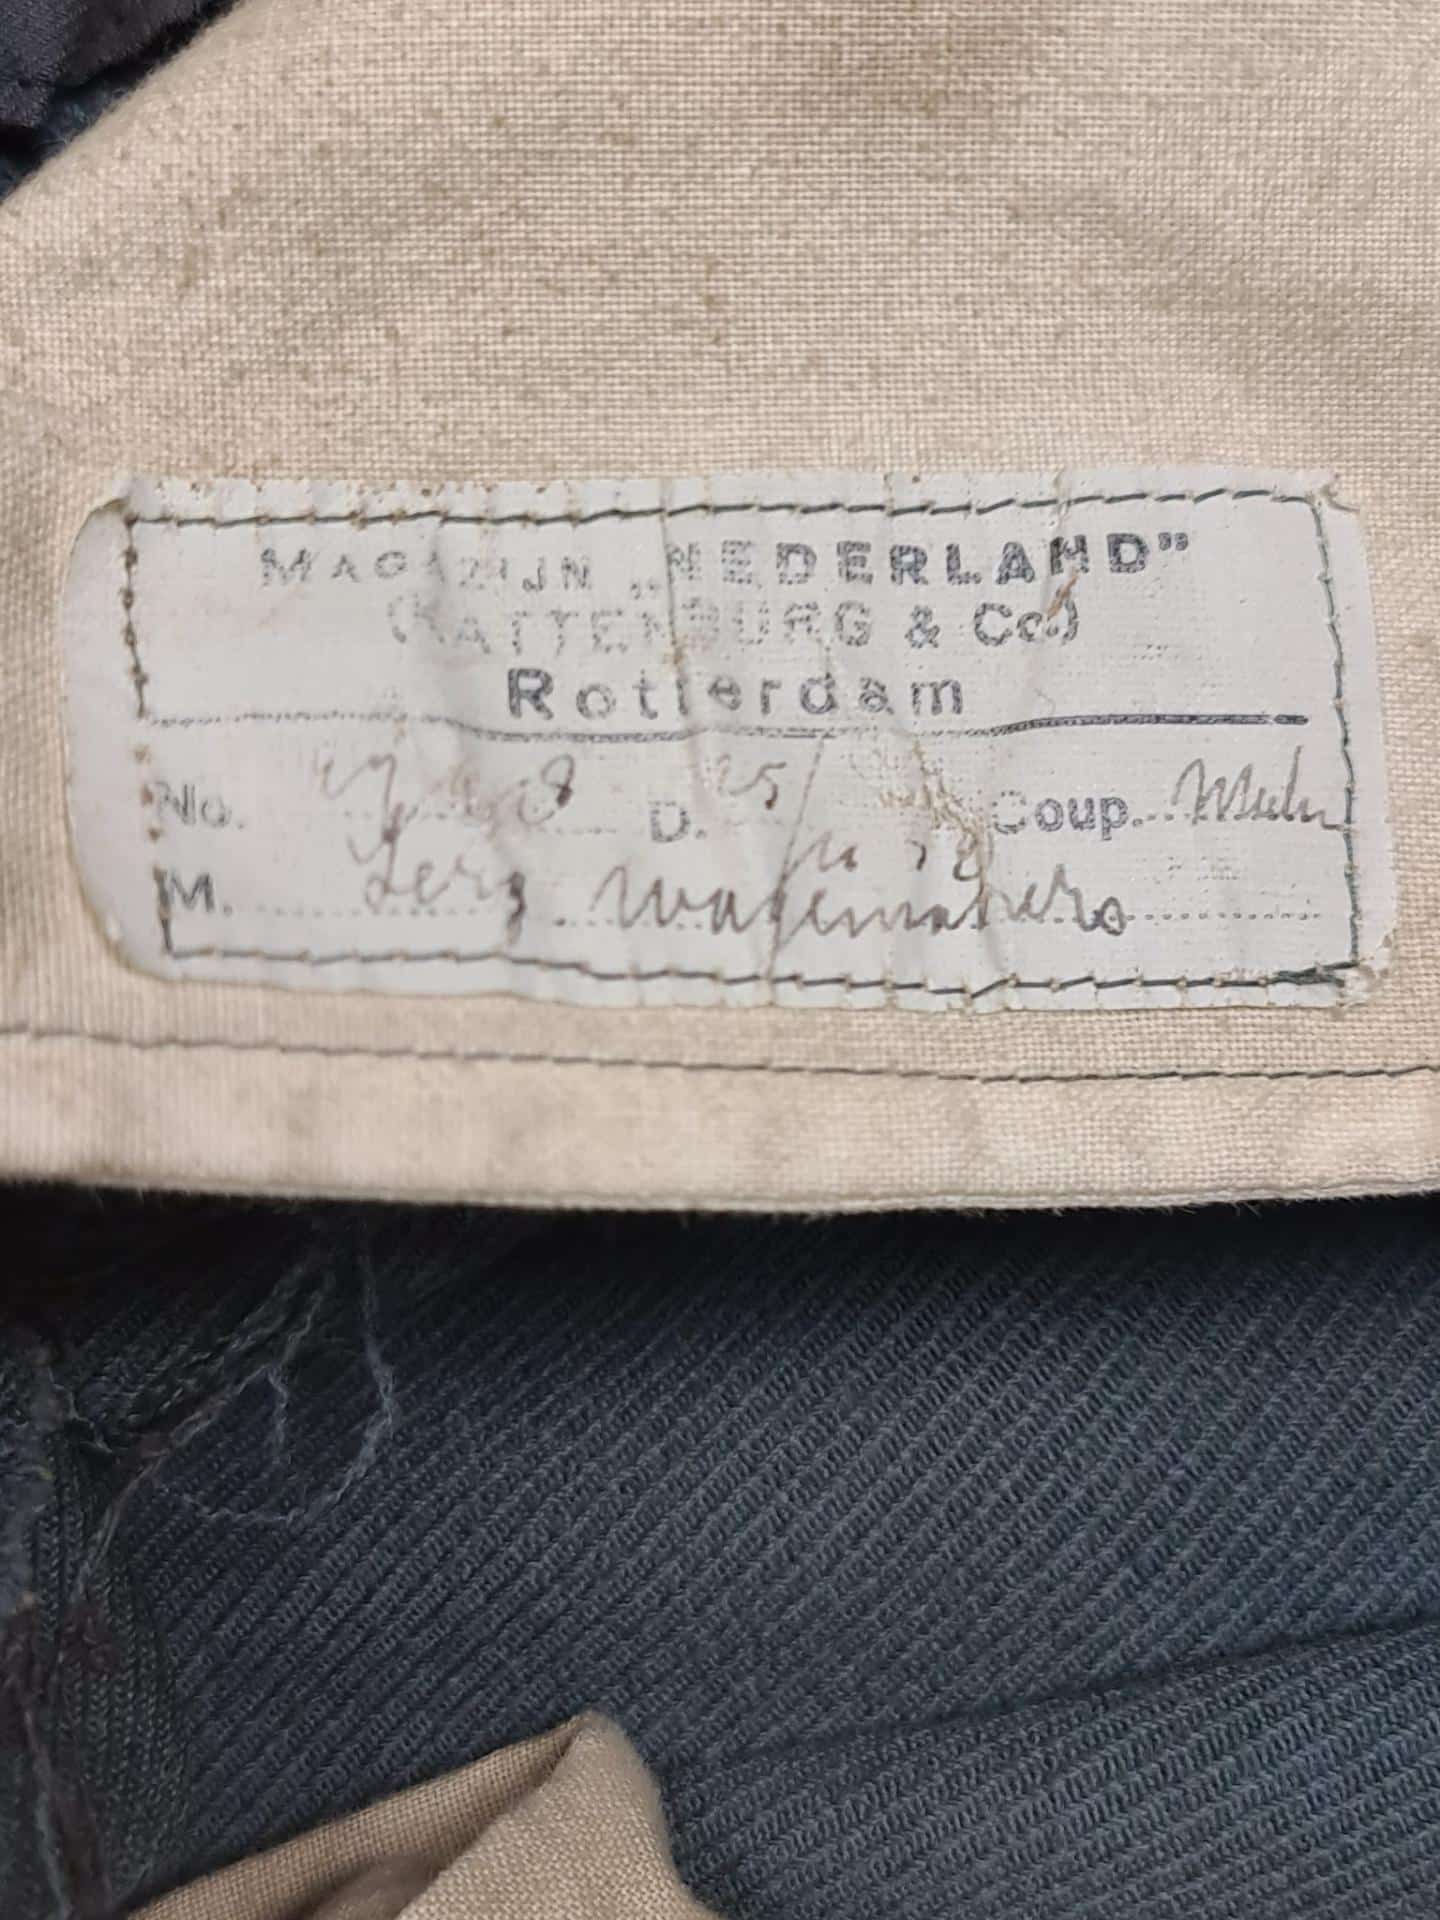 MAGAZIJN „NEDERLAND”
(KATTENBURG & Co.)
Rotterdam
No. D. 25 Coup.
M. Wagemakers